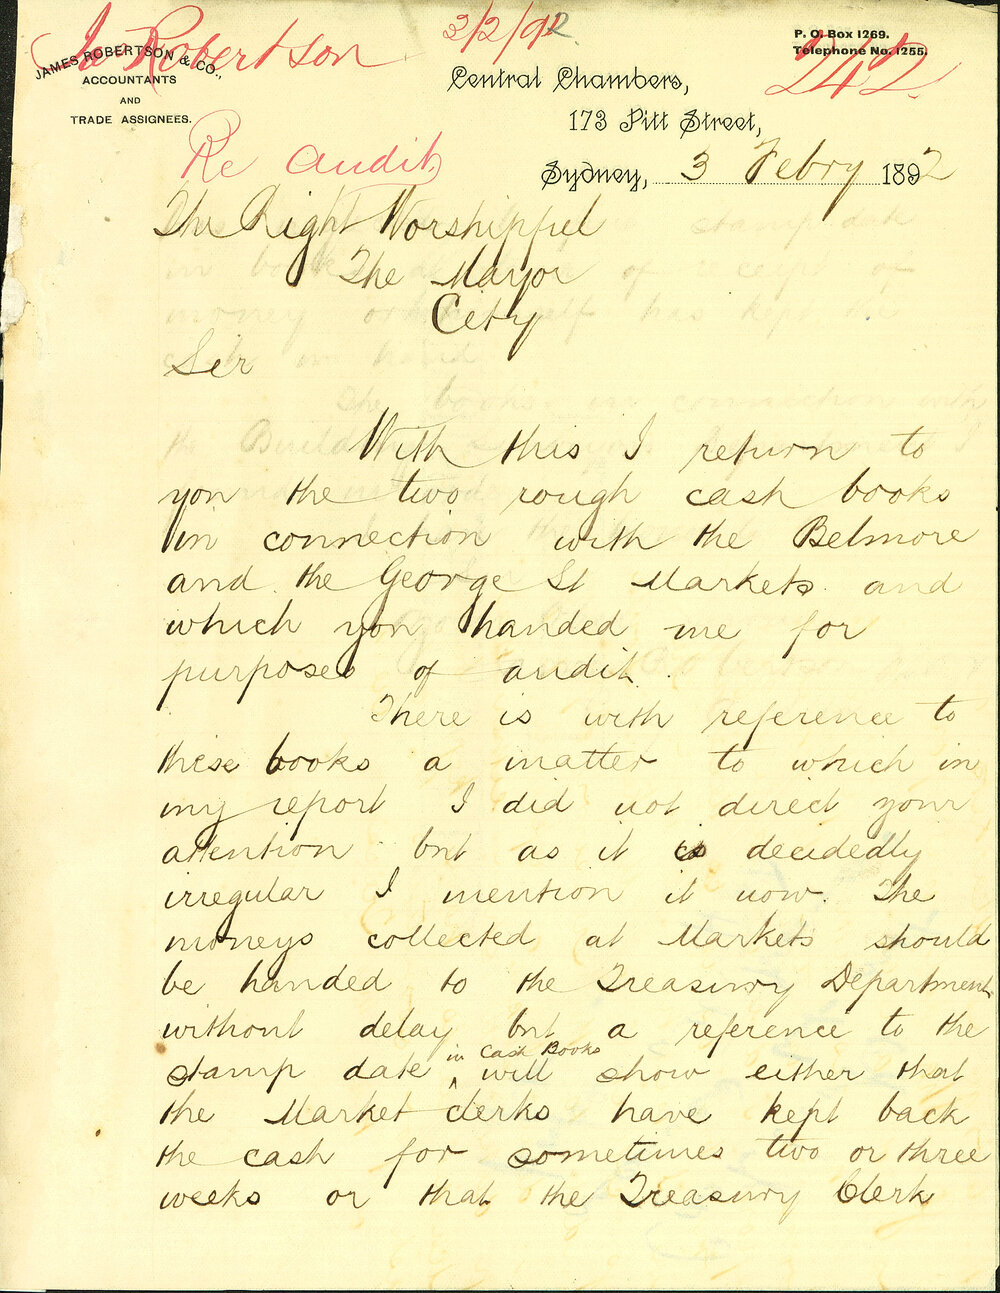 Jas Robertson
2/2/92
242
JAMES ROBERTSON & CO.,
ACCOUNTANTS
AND
TRADE ASSIGNEES.
P. O. Box 1269.
Telephone No. 1255.
Central Chambers,
173 Pitt Street,
Re Audit
Sydney, 3 Febry 1892
The Right Worshipful
The Mayor
City
Sir
With this I return to
you the two rough cash books
in connection with the Belmore
and the George St Markets and
which you handed me for
purposes of audit.
There is with reference to
these books a matter to which in
my report I did not direct your
attention but as it is decidedly
irregular I mention it now. The
moneys collected at Markets should
be handed to the Treasury Department
without delay but a reference to the
in Cash Books
stamp date ^ will show either that
the Market clerks have kept back
the cash for sometimes two or three
weeks or that the Treasury Clerk